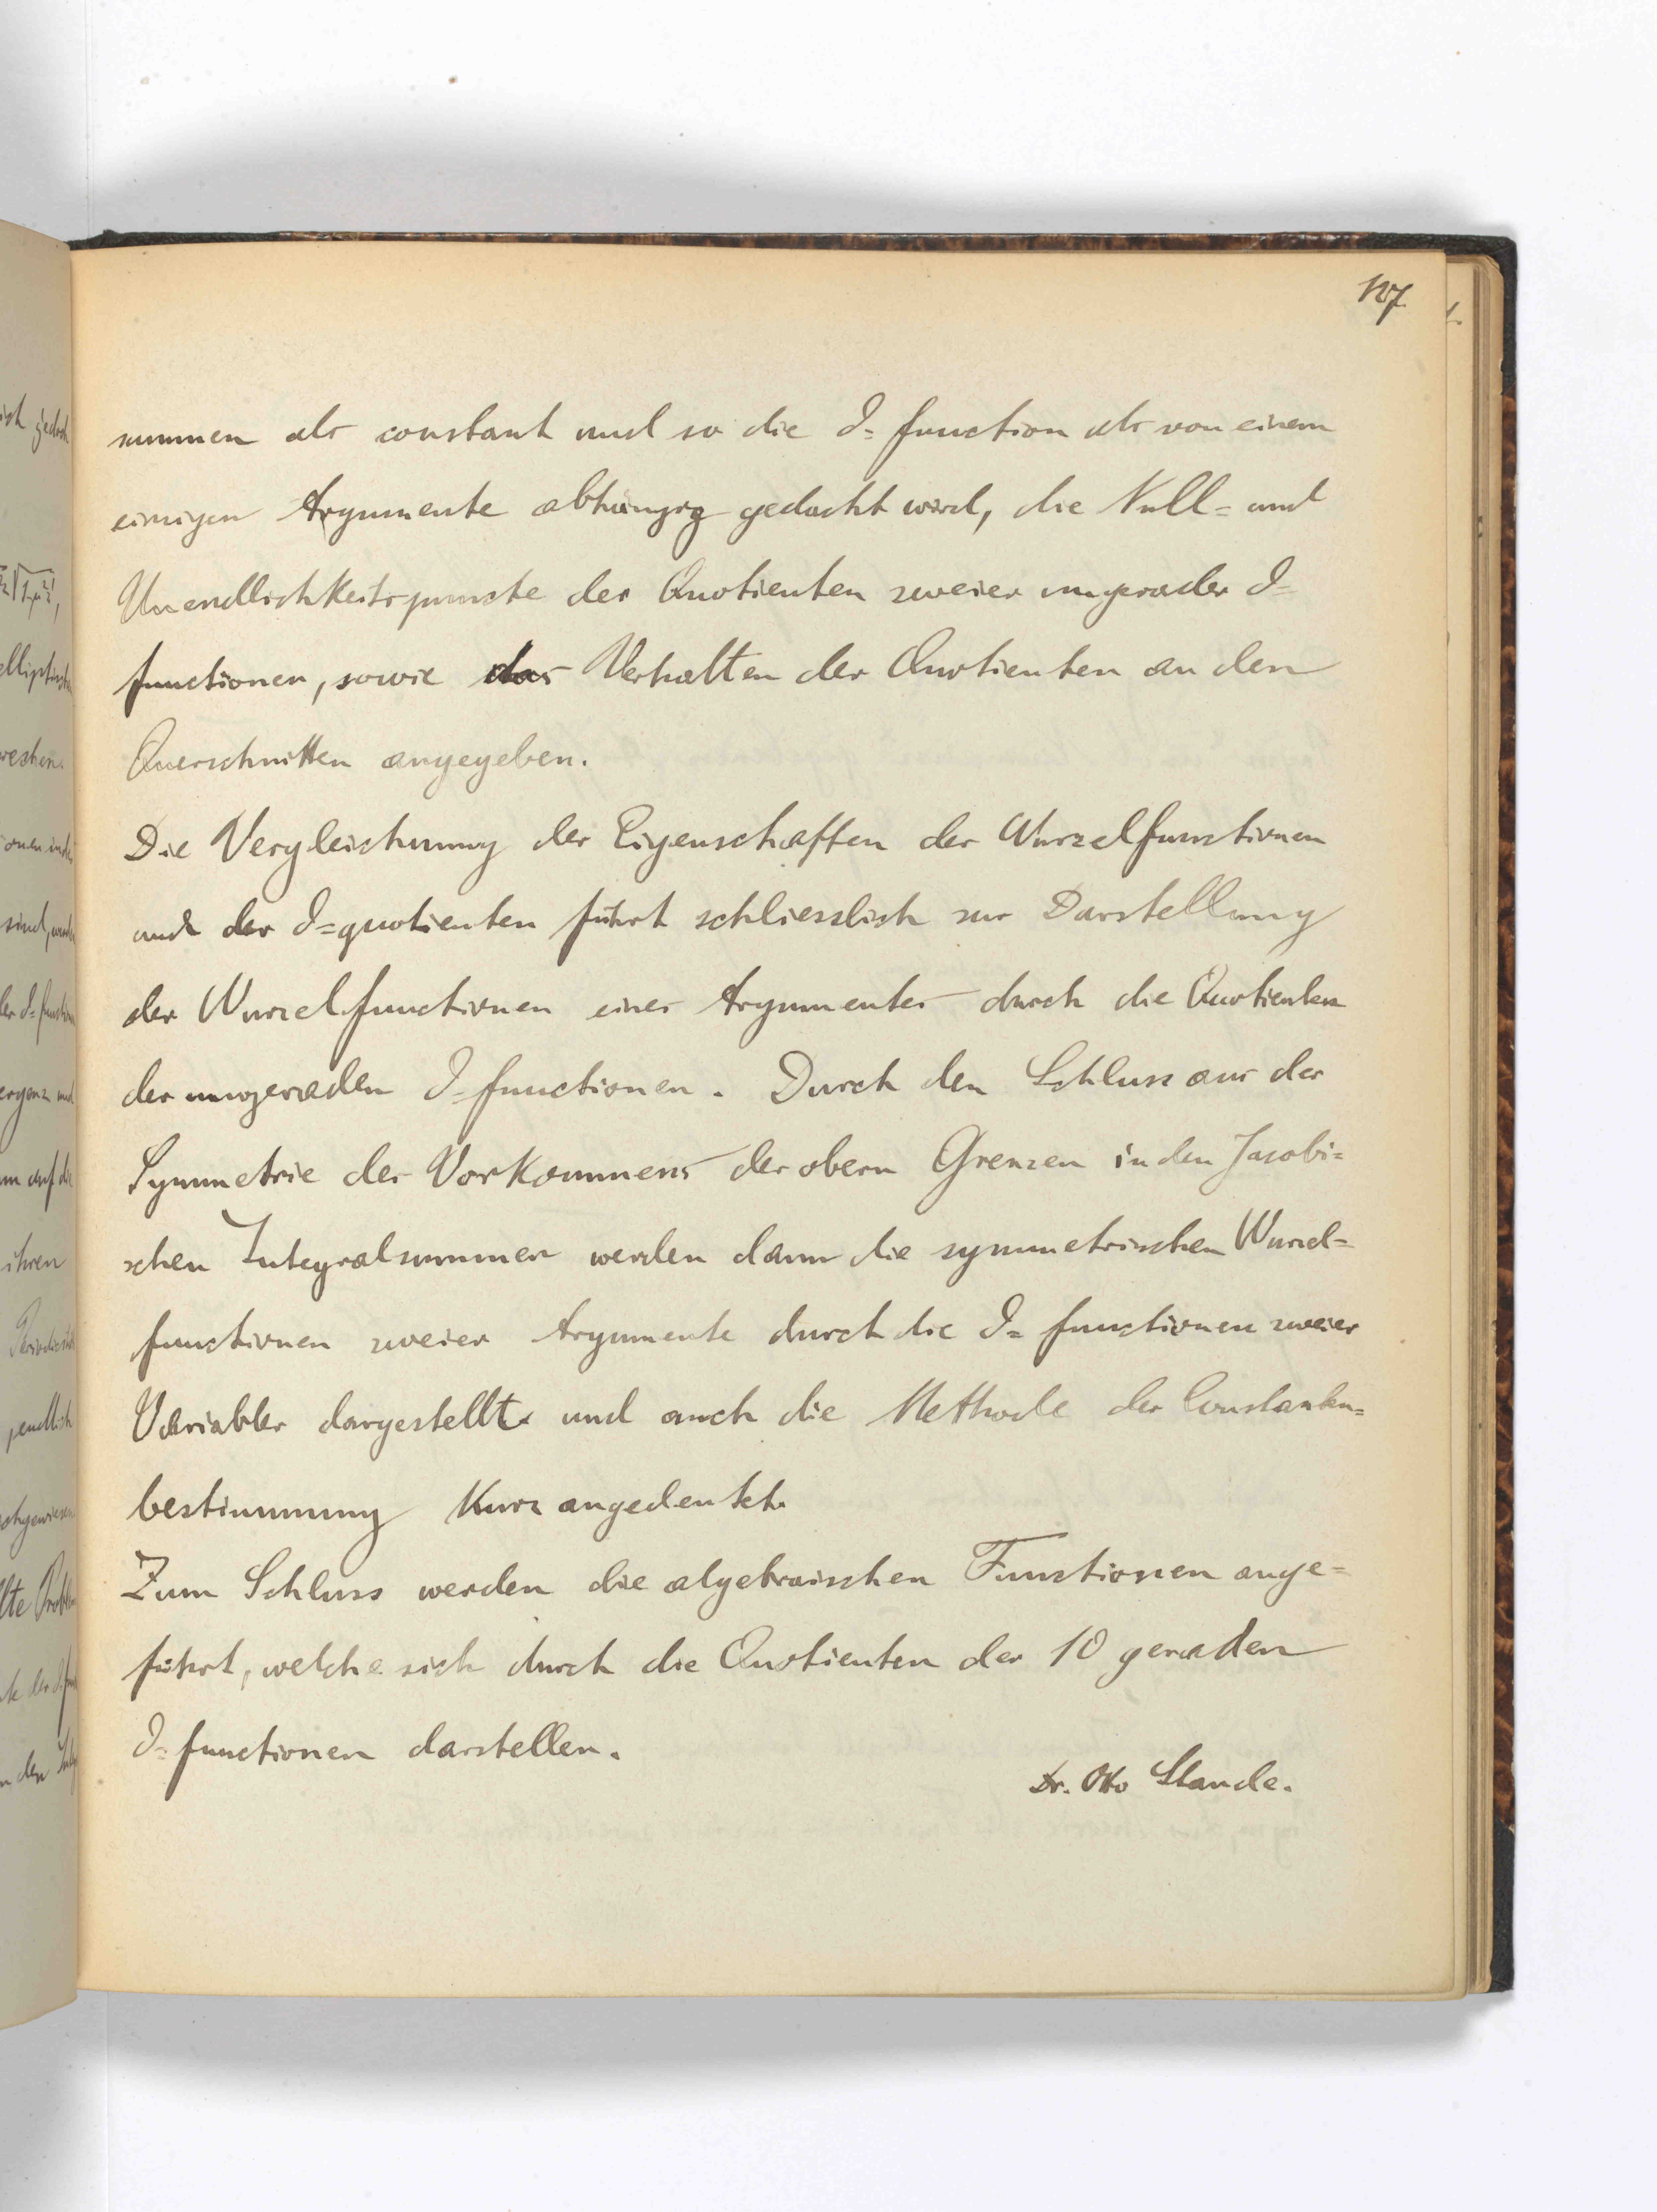 127
summen als constant und so die ϑ=function als von einem
einzigen Argumente abhängig gedacht wird, die Null= und
Unendlichkeitspuncte der Quotienten zweier ungerader ϑ=
functionen, sowie das Verhalten der Quotienten an den
Querschnitten angegeben.
Die Vergleichung der Eigenschaften der Wurzelfunctionen
und der ϑ=quotienten führt schliesslich zur Darstellung
der Wurzelfunctionen eines Argumentes durch die Quotienten
der ungeraden ϑ=functionen. Durch den Schluss aus der
Symmetrie des Vorkommens der obern Grenzen in den Jacobi=
schen Integralsummen werden dann die symmetrischen Wurzel=
functionen zweier Argumente durch die ϑ=functionen zweier
Variabler dargestellt und auch die Methode der Constanten=
bestimmung kurz angedeutet.
Zum Schluss werden die algebraischen Functionen ange=
führt, welche sich durch die Quotienten der 10 geraden
ϑ=functionen darstellen.
Dr. Otto Staude.